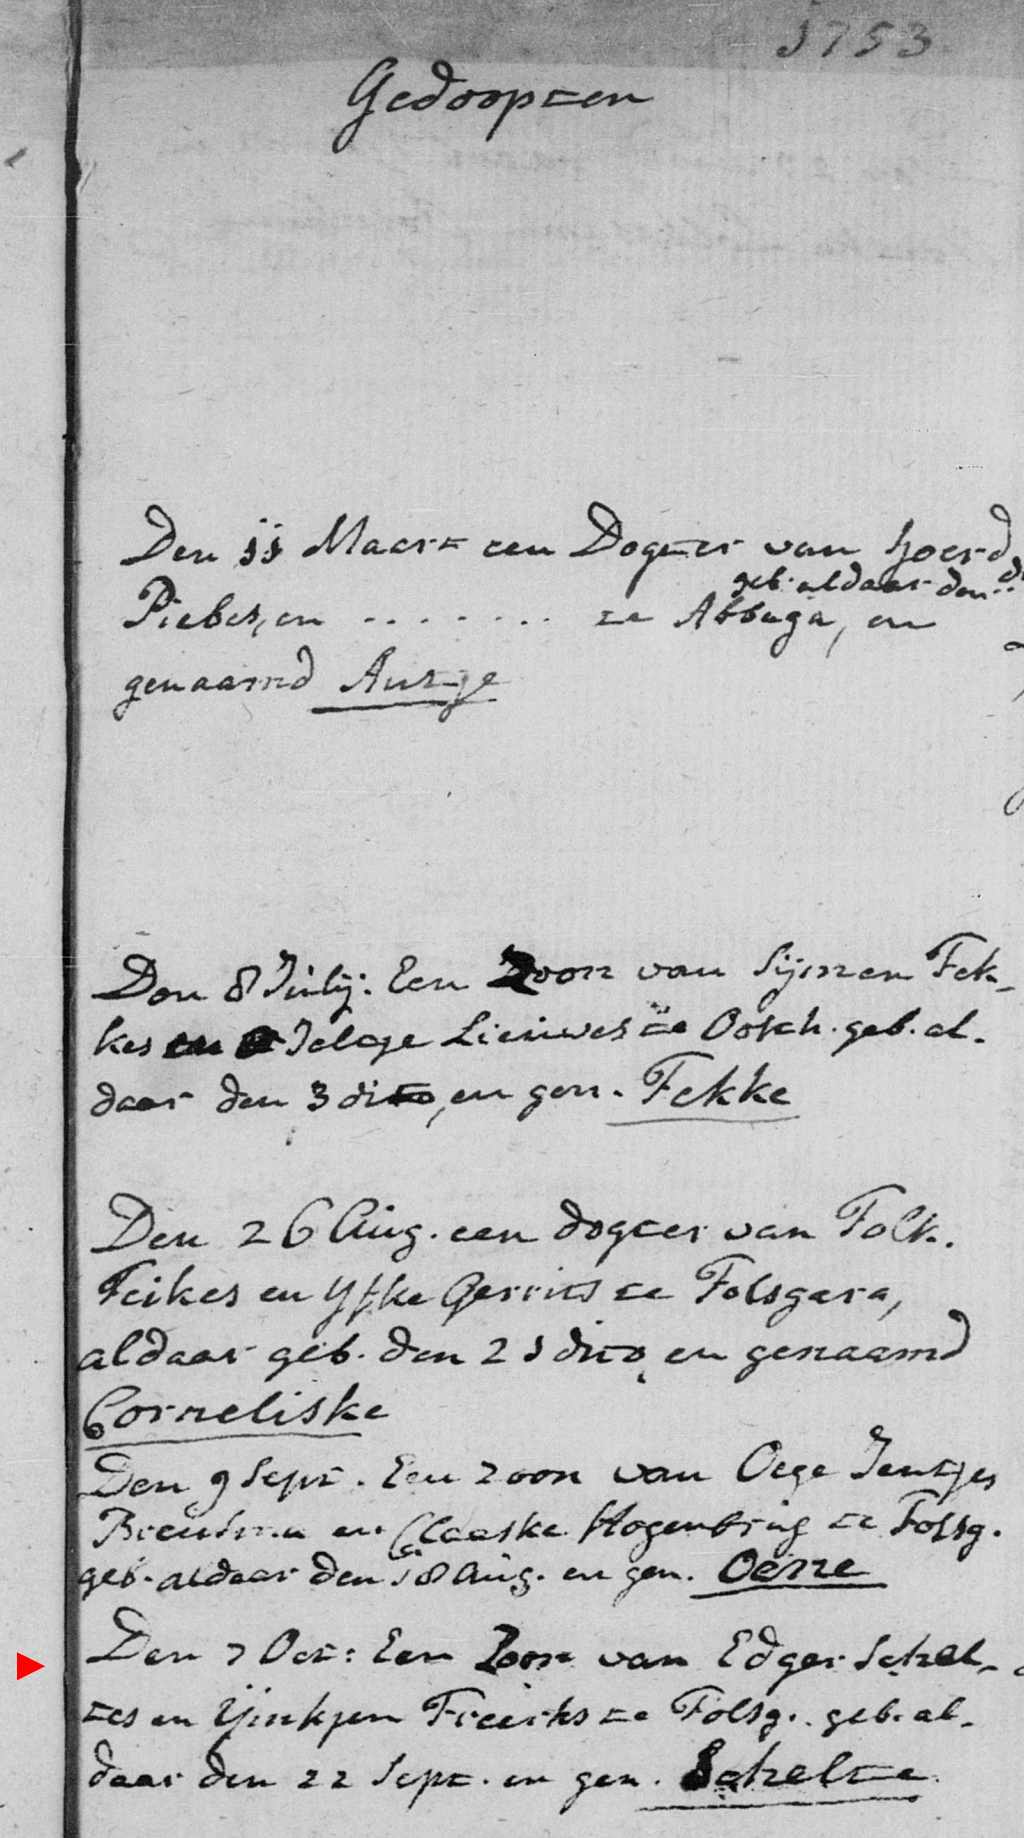 1753
Gedoopten
Den 11 Maart een Dogter van Sjoerd
geb. aldaar den
Piebes, en ........ te Abbega, en
genaamd Antje
Den 8 Julij: Een Zoon van Sijmen Fek-
kes en Jeltje Lieuwes te Oosth. geb. al-
daar den 3 dito, en gen. Fekke
Den 26 Aug. een dogter van Folk.
Feikes en Yfke Gerrits te Folsgara,
aldaar geb. den 21 dito, en genaamd
Corneliske
Den 9 Sept. Een zoon van Oege Jentjes
en Claaske Hogenbrug te Folsg.
geb. aldaar den 18 Aug. en gen. Oene
Den 7 Oct: Een Zoon van Edger Schel-
tes en Yjnkjen Freerks te Folsg. geb. al-
daar den 22 Sept. en gen. Schelte